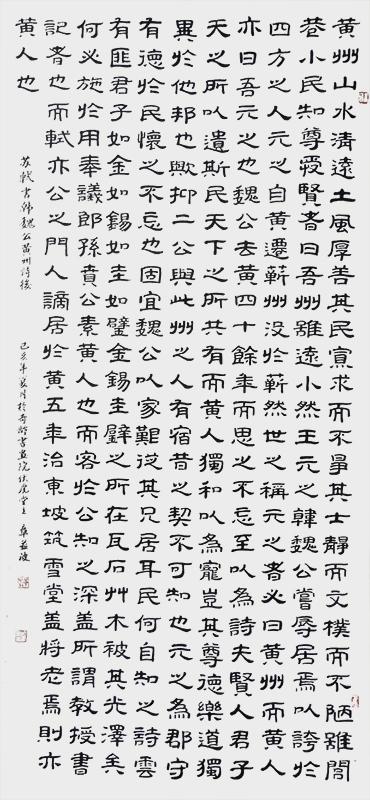 黃州山水清遠土風厚善其民寡求而不爭其士靜而文樸而不陋雖閭
巷小民知尊愛賢者曰吾州雖遠小然王元之韓魏公嘗辱居焉以誇於
四方之人元之自黃遷蘄州没於蘄然世之稱元之者必曰黃州而黃人
亦曰吾元之也魏公去黃四十餘年而思之不忘至以為詩夫賢人君子
天之所以遺斯民天下之所共有而黃人獨和以為寵豈其尊德樂道獨
異於他邦也歟抑二公與此州之人有宿昔之契不可知也元之為郡守
有德於民懷之不忘也固宜魏公以家艱從其兄居耳民何自知之詩雲
有匪君子如金如錫如圭如璧金錫圭璧之所在瓦石艸木被其光澤矣
何必施於用奉議郎孫賁公素黃人也而客於公知之深盖所謂教授書
記者也而軾亦公之門人謫居於黃五年治東坡筑雪堂盖將老焉則亦
黃人也
苏軾書韓魏公黃州詩後
己亥年夏月於書画院伏虎堂上